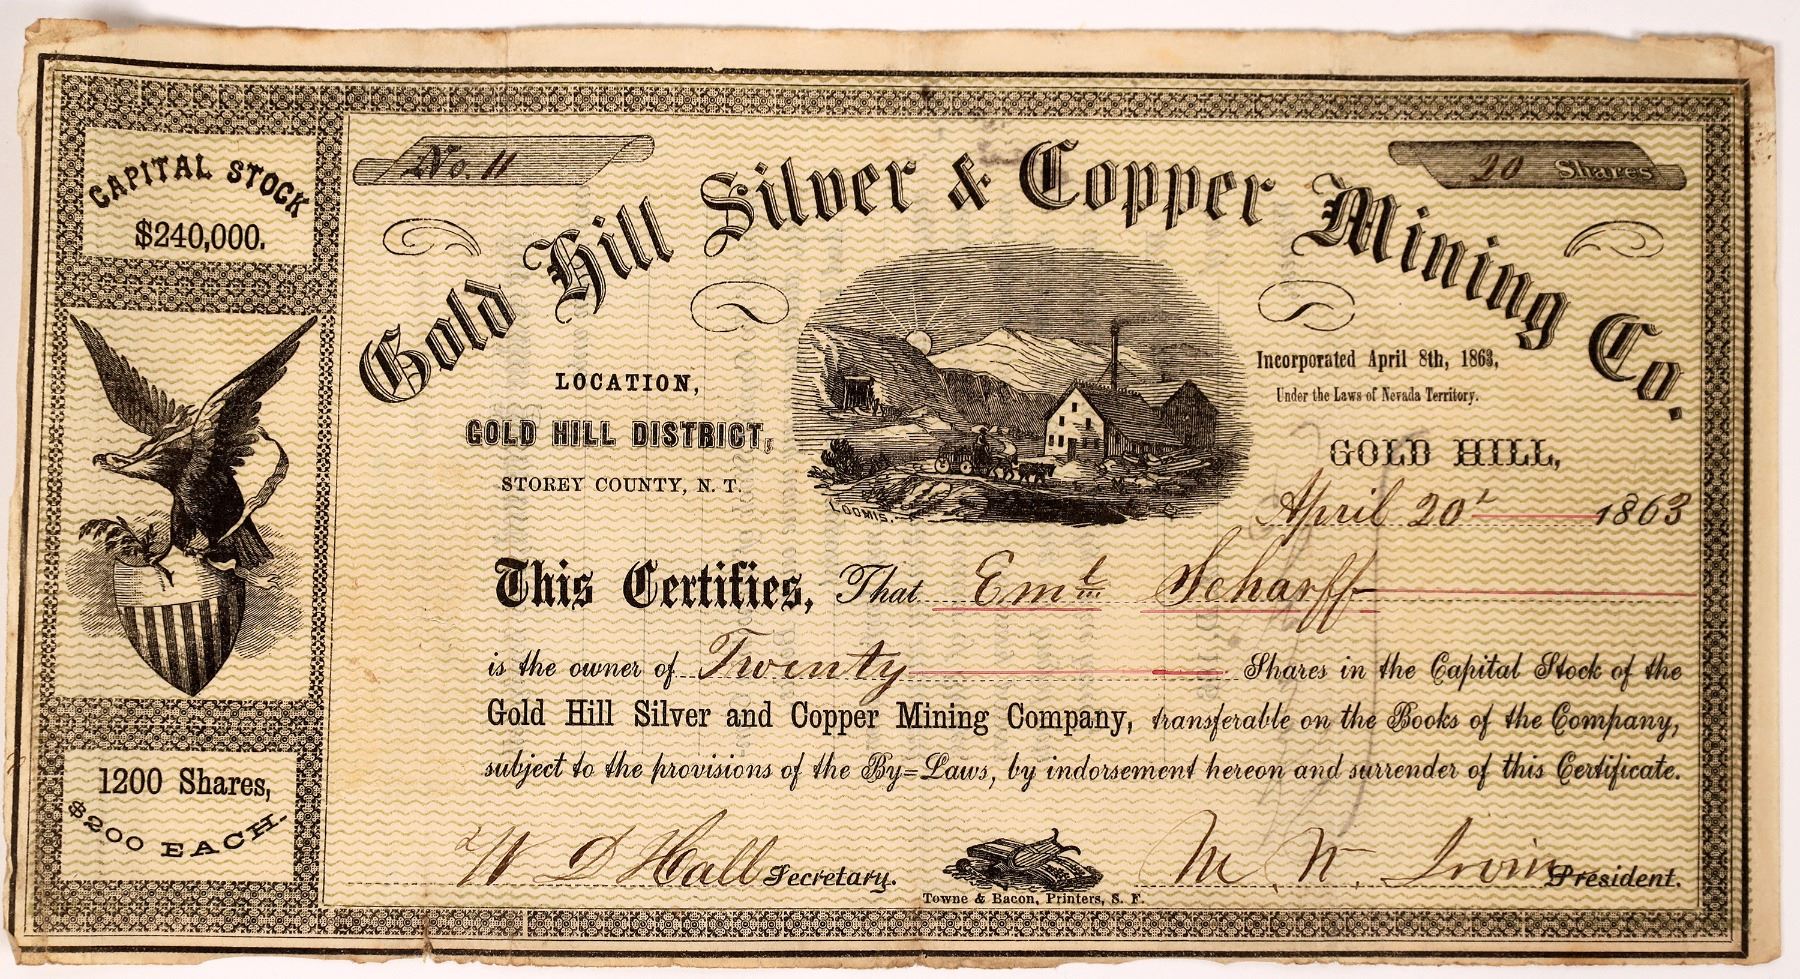 CAPITAL STOCK
$240,000.
1200 Shares,
$200 EACH.
No. 11
20 Shares
Gold Hill Silver & Copper Mining Co.
LOCATION,
GOLD HILL DISTRICT,
STOREY COUNTY, N. T.
LOOMIS.
Incorporated April 8th, 1863,
Under the Laws of Nevada Territory.
GOLD HILL,
April 20 1863
This Certifies, That Eml Scharff
is the owner of Twenty Shares in the Capital Stock of the
Gold Hill Silver and Copper Mining Company, transferable on the Books of the Company,
subject to the provisions of the By=Laws, by indorsement hereon and surrender of this Certificate.
W D Hall Secretary.
M. W. Irvin President.
Towne & Bacon, Printers, S. F.